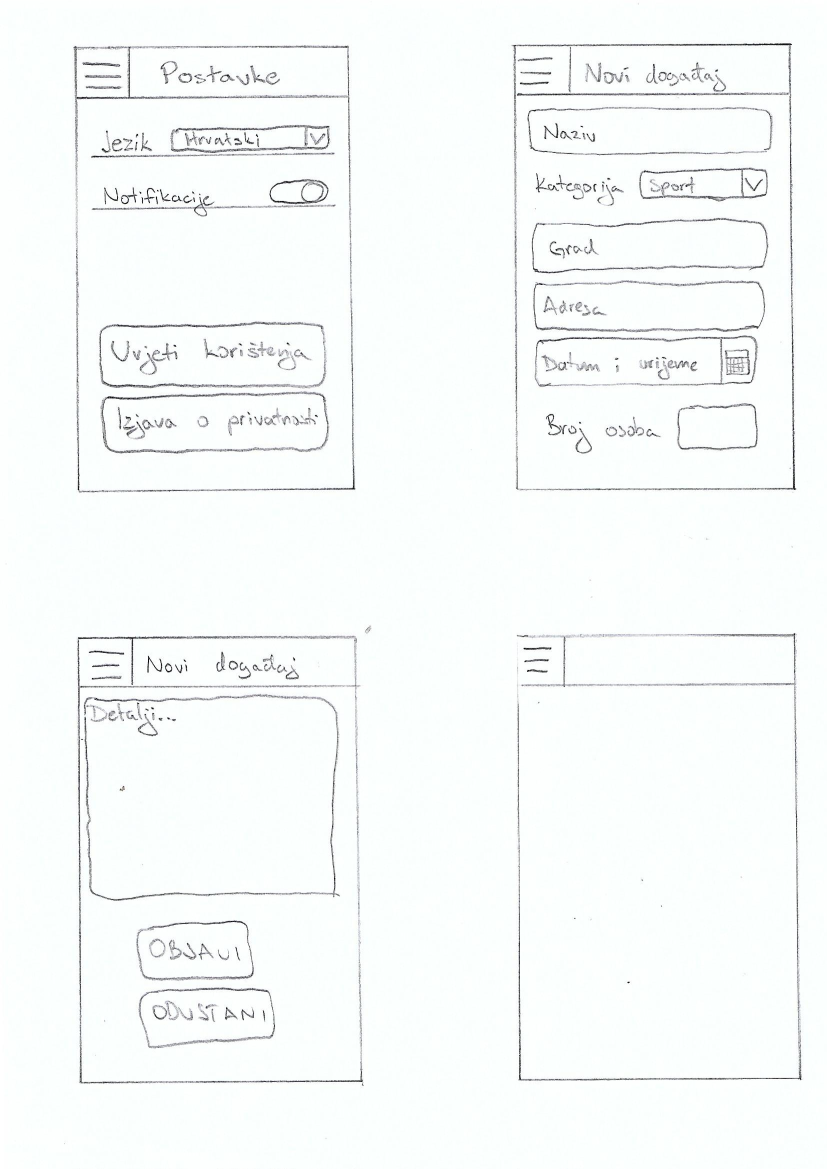 Postavke
Jezik Hrvatski
Notifikacije
Uvjeti korištenja
Izjava o privatnosti
Novi događaj
Naziv
Kategorija Sport
Grad
Adresa
Datum i vrijeme
Broj osoba
Novi događaj
Detalji...
OBJAVI
ODUSTANI